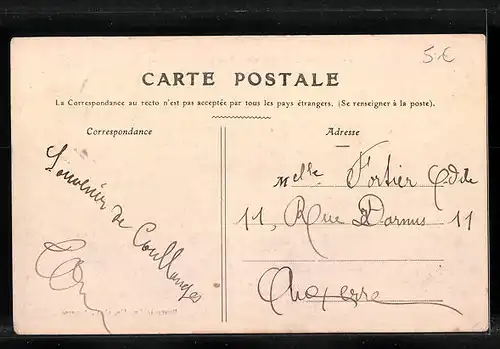 5.€
CARTE POSTALE
La Correspondance au recto n'est pas acceptée par tous les pays étrangers. (Se renseigner à la poste).
Correspondance
Adresse
Souvenir de Coullanges
Melle Fortier
11, Rue 11
Auxerre